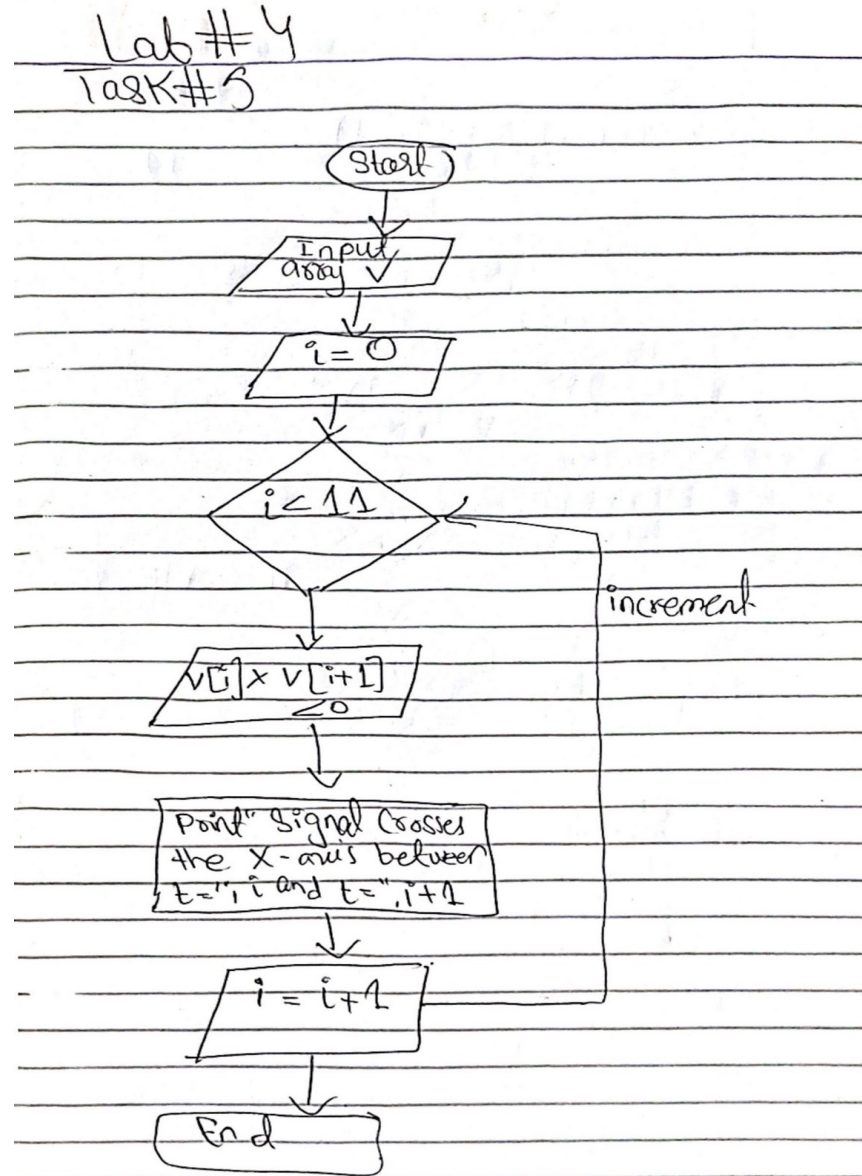 Lab # 4
Task # 5
Start
Input
array V
i = 0
i < 11
increment
V[i] x V[i+1]
<0
Print" Signal Crosses
the X-axis between
t=", i and t=", i+1
i = i+1
End